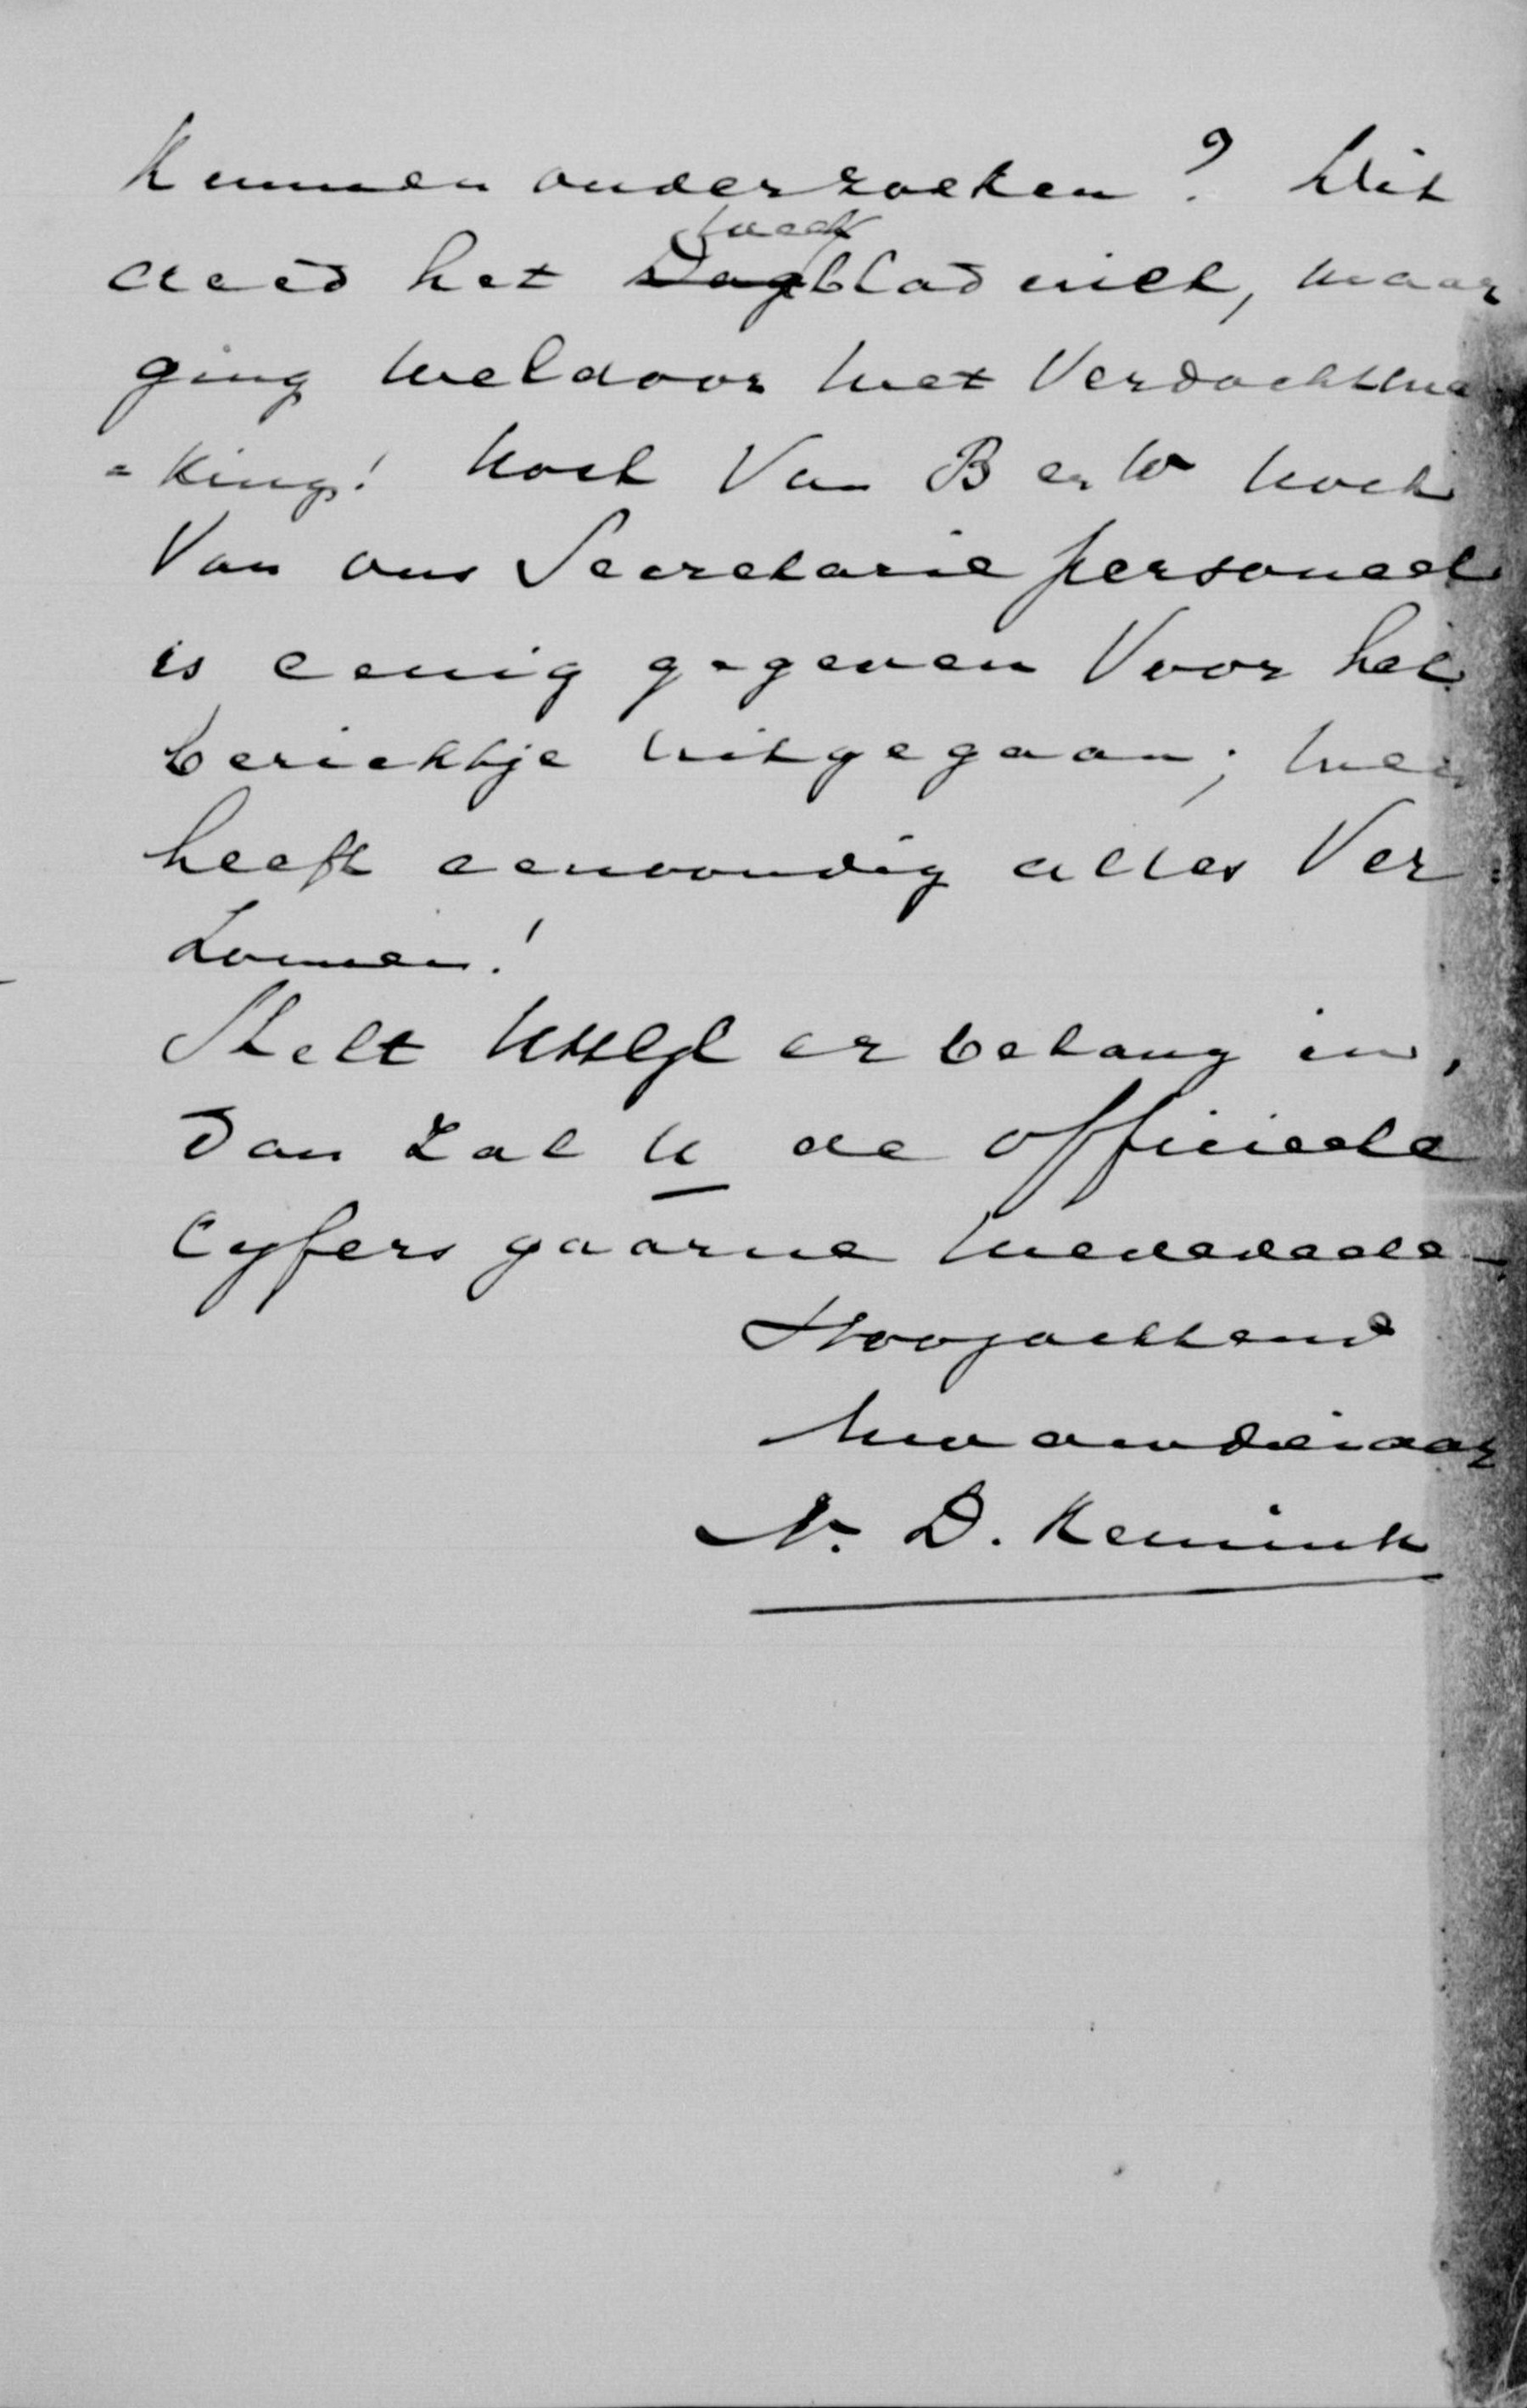 Kunnen onderzoeken? Dit
deed het Dagblad niet, maar
ging wel door met Verdachtma
=king! noch Van B en W noch
Van ons Secretarie personeel
is eenig gegeven Voor het
berichtje uitgegaan; men
heeft eenvoudig alles Ver=
zonnen!
Stelt er belang in,
dan zal U de officieele
Cyfers gaarne mededeele-
Hoogachtend
Uw dienaar
N. D. Kemink